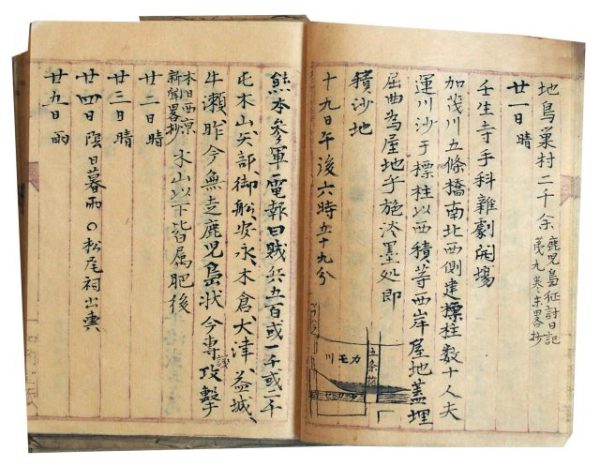 地鳥巣村二千余
鹿児島征討日記
廿一日晴
壬生寺手科雜劇開場
加茂川五條橋南北西側建標柱数十人夫
運川沙于標柱以西積、等西岸屋地蓋埋
屈曲為屋地乎施淡墨処即
積沙地
十九日午後六時五十九分
五条橋
カモ川
熊本参軍電報曰賊兵五百或一千或二千
屯木山、矢部、御船、安永、木倉、大津、益城、
牛瀬、昨今無走鹿児島状今専議攻撃
本日西京
新聞畧抄
木山以下皆属肥後
廿二日晴
廿三日晴
廿四日陰日暮雨の松尾祠出輿
廿五日雨